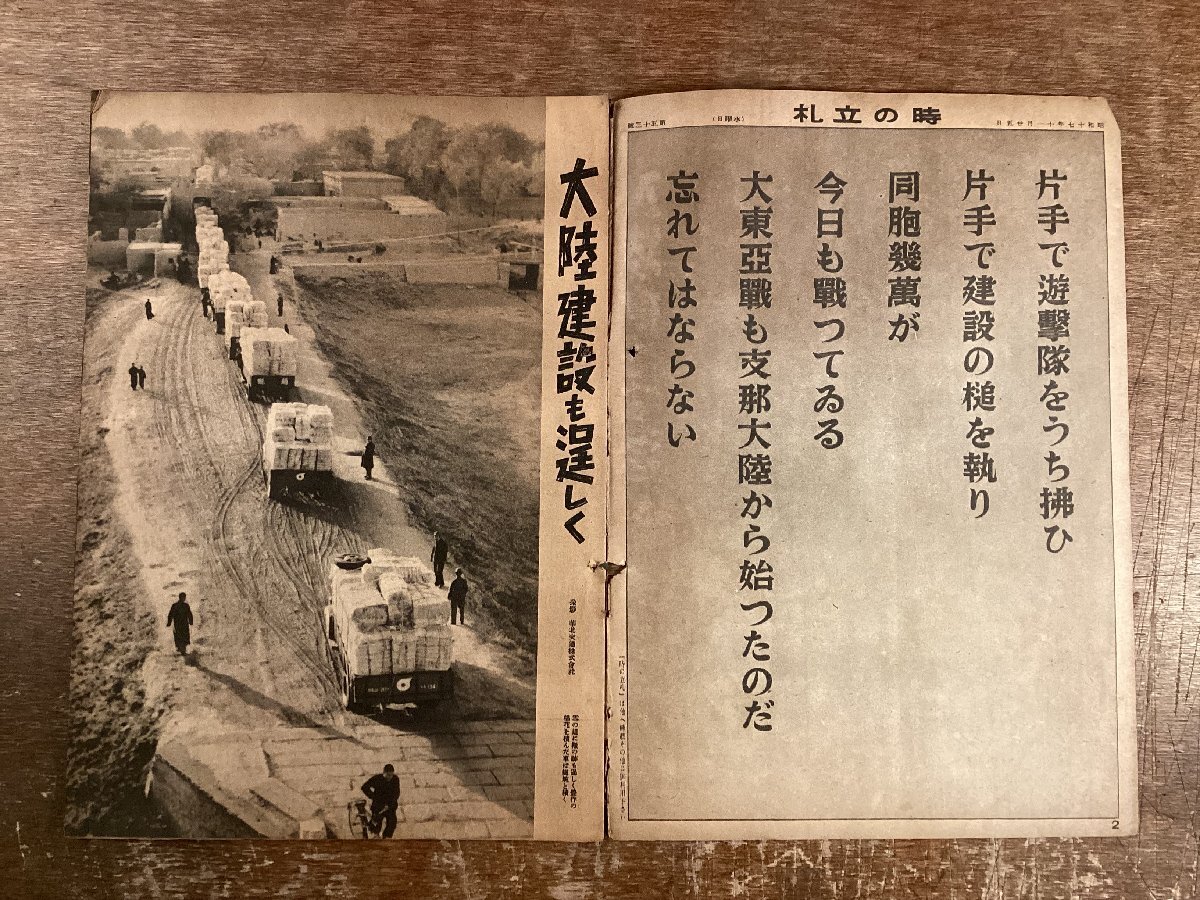 時の立札
昭和十七年十一月廿五日
(水曜日)
片手で遊擊隊をうち拂ひ
片手で建設の槌を執り
同胞幾萬が
今日も戰つてゐる
大東亞戰も支那大陸から始つたのだ
忘れてはならない
2
大陸建設も逞しく
華北交通株式會社